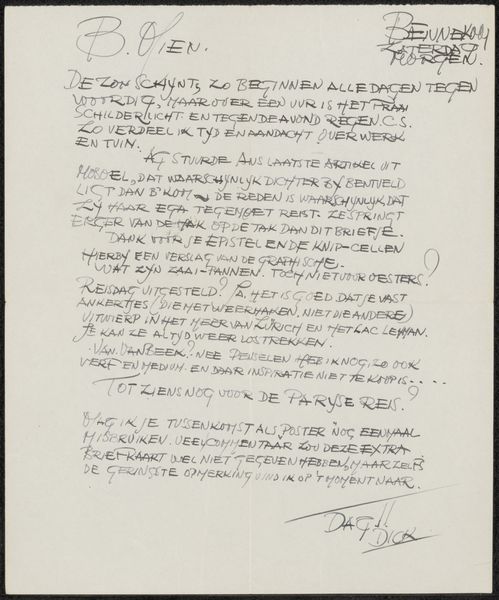 B. Mien.
BENNEKOM
ZATERDAG
MORGEN.
DE ZON SCHIJNT, ZO BEGINNEN ALLE DAGEN TEGEN
WOORDIG, MAAR OVER EEN UUR IS HET FRAAI
SCHILDERLICHT EN TEGEN DE AVOND REGEN. C.S.
ZO VERDEEL IK TIJD EN AANDACHT OVER WERK
EN TUIN.
STUURDE ANS LAATSTE ARTIKEL UIT
DAT WAARSCHIJNLIJK DICHTER BIJ BENTVELD
LIGT DAN B'KOM DE REDEN IS WAARSCHIJNLIJK DAT
ZIJ HAAR EGA TEGEMOET REIST. ZE SPRINGT
ERGER VAN DE HAK OP DE TAK DAN DIT BRIEFJE.
DANK VOOR JE EPISTEL EN DE KNIP-CELLEN
HIERBIJ EEN VERSLAG VAN DE GRAPHISCHE.
WAT ZIJN ZAAI-PANNEN. TOCH NIET VOOR OESTERS?
REISDAG UITGESTELD? JA, HET IS GOED DAT JE VAST
ANKERTJES (DIE MET WEERHAKEN, NIET DIE ANDERE)
UITWIERP IN HET MEER VAN ZÜRICH EN MET LAC LEMAN.
JE KAN ZE ALTIJD WEER LOSTREKKEN.
VAN VAN BEEK? NEE PENSELEN HEB IK NOG, ZO OOK
VERF EN MEDIUM. EN DAAR INSPIRATIE NIET TE KOOP IS....
TOT ZIENS NOG VOOR DE PARIJSE REIS?
MAG IK JE TUSSENKOMST ALS POSTER NOG EENMAAL
MISBRUIKEN. VEEL COMMENTAAR ZOU DEZE EXTRA
BRIEFKAART WEL NIET GEGEVEN HEBBEN, MAAR ZELFS
DE GERINGSTE OPMERKING VIND IK OP 'T MOMENT NAAR.
DAG!!
DICK